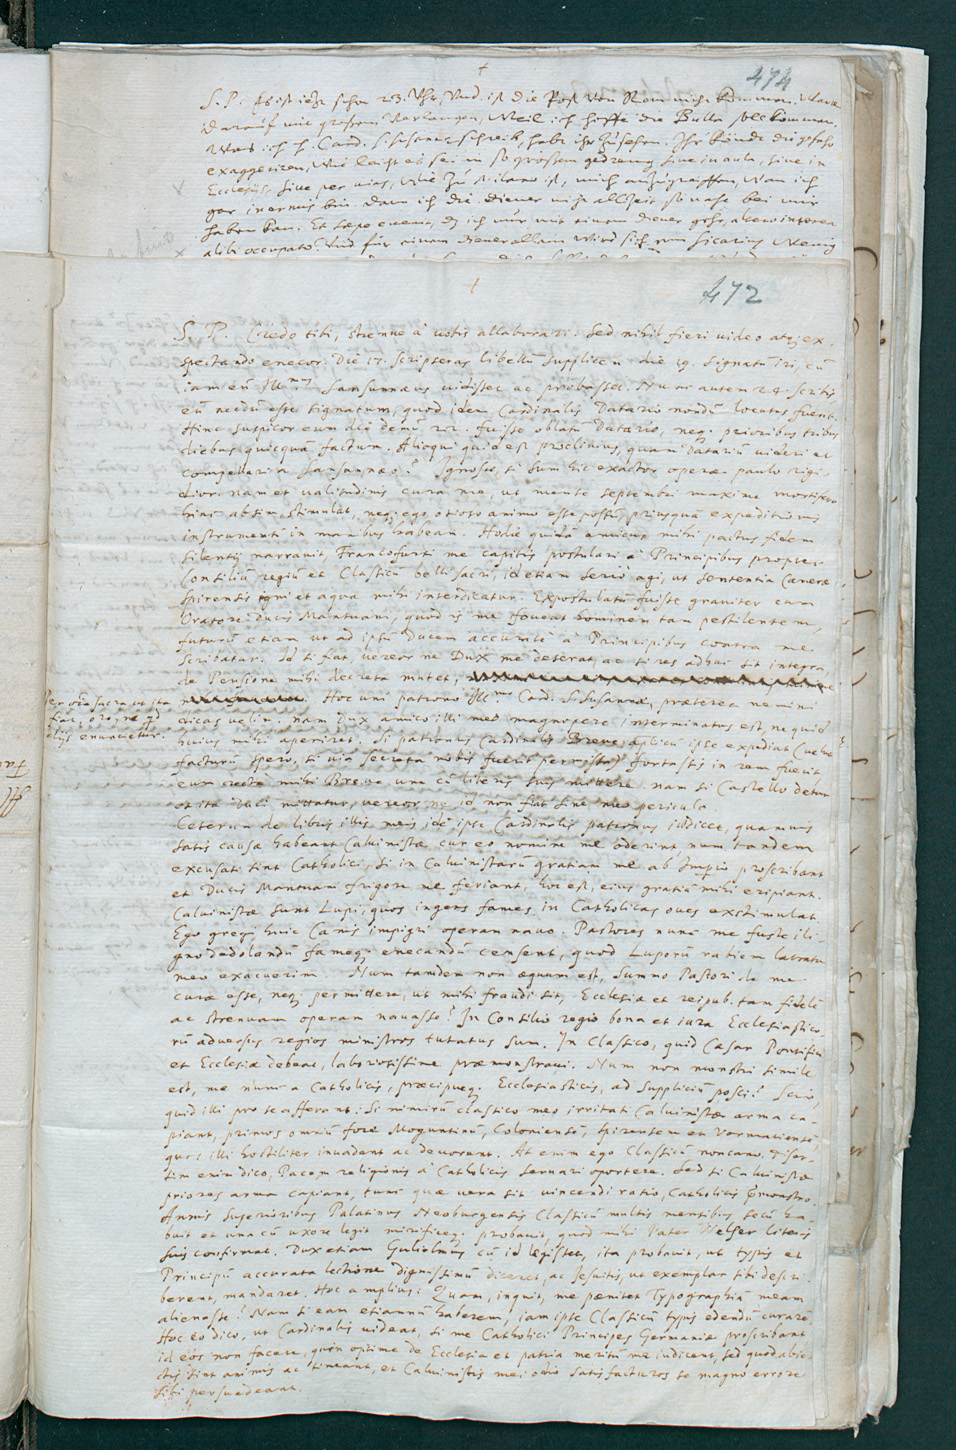 †
474
S. P. Es ist ietzt schon 23. Uhr, Und ist die Post von Rom nicht kommen. Warte
darauf mit grossem Verlangen, Weil ich hoffe die Bulla soll kommen.
Was ich H. Card. S. Susannae schreib, habt ihr zusehen. Ihr könnt die gefahr
exaggeriren, Wie leicht es sei in so grossem gedreng sive in aula, sive in
Ecclesijs, sive per vias, Wie zu Milano ist, mich anzugreiffen, Wan ich
gar inermis bin dann ich die Diener nicht allzeit so nahe bei mir
haben kan. Et saepe evenit, dz ich nur mit einem Diener gehe, altero interea
alibi occupato. Und für einem Diener allein wird sich ein sicarius Wenig
†
472
S. P. Credo tibi, strenue à vobis allaborari. Sed nihil fieri video atq; ex-
spectando enecor. Die 17. scripseras libellū supplicem die 19. signatū iri, cū
iam eū Illmus Sansumaeus vidisset ac probasset. Nunc autem 24. scribis
eū necdū esse signatum, quod idem Cardinalis Datario nondū locutus fuerit.
Hinc suspicor eum die demū 22. fuisse oblatū Datario, neq. prioribus tribus
diebus quicquā factum. Alioqui quid est proclivius, quam Datariū videri et
compellari à Sansumaeo? Ignosce, si sum hic exactor operae paulo rigi-
dior. nam et valitudinis cura me, ut mense Septembri maxime mortifero
hinc absim, stimulat, neq; ego otioso animo esse possū, priusquā expeditionis
instrumenta in manibus habeam. Hodie quidā amicus mihi pactus fidem
silentij narravit, Francofurti me capitis postulari à Principibus propter
Consiliū regiū et Classicū belli sacri, id etiam serio agi, ut sententia Camerae
Spirensis igni et aqua mihi interdicatur. Expostulatū fuisse graviter cum
Oratore Ducis Mantuani, quod is me foveat hominem tam pestilentem,
futurū etiam ut ad ipsū Ducem accurate à Principibus contra me
scribatur. Id si fiat, vereor ne Dux me deserat, ac si res adhuc sit integra
de Pensione mihi decreta mutet,
Hoc uni patrono Illmo Card. S. Susannae, praeterea nemini
dicas velim. nam Dux amico illi meo magnopere interminatus est, ne quid
huius mihi aperiret. Si patronus Cardinalis Breve aplicū ipse expediat (velut
facturū spero, si via secreta nobis fuerit permissa) fortassis in rem fuerit
eum recta mihi Breve una cū literis suis mittere. nam si Castello detur
et ita mihi mittatur, vereor ne id non fiat sine meo periculo.
Per oīa sacra ut ita
fiat, oro, ne qd
alijs enuncietur.
Ceterum de libris illis meis idē ipse Cardinalis patronus iudicet, quamvis
satis causae habeant Calvinistae cur eo nomine me oderint num tandem
excusati sint Catholici, si in Calvinistarū gratiam me ab Imperio proscribant
et Ducis Mantuani frigore me feriant, hoc est, eius gratiā mihi eripiant.
Calvinistae sunt Lupi, quos ingens fames in Catholicas oves exstimulat.
Ego gregi huic Canis impigri operam navo. Pastores nunc me fuste ili-
gno dedolandū fameq; enecandū censent, quod Luporū rabiem latratu
meo exacuerim. Num tandem non aequum est, summo Pastori de me
curae esse, neq; permittere, ut mihi fraudi sit, Ecclesiae et reipub. tam fidelē
ac strenuam operam navasse? In Consilio regio bona et iura Ecclesiastico-
rū adversus regios ministros tutatus sum. In Classico, quid Caesar Pontifici
et Ecclesiae debeat, laboriosissime praemonstravi. Num non monstri simile
est, me nunc à Catholicis, praecipueq. Ecclesiasticis, ad suppliciū posci? Scio,
quid illi pro se afferant: Si nimirū Classico meo irritati Calvinistae arma ca-
piant, primos omniū fore Moguntinū, Coloniensē, Spirensem et Vormatiensē,
quos illi hostiliter invadent ac devorent. At enim ego Classicū non cano. Diser-
tim enim dico, Pacem religionis à Catholicis servari oportere. Sed si Calvinistae
priores arma capiant, tunc quae vera sit vincendi ratio, Catholicis p̄monstro.
Annis superioribus Palatinus Neoburgensis Classicū multis mensibus secū ha-
buit et una cū uxore legit mirificeq. probavit, quod mihi Pater Welser literis
suis confirmat. Dux etiam Gulielmus cū id legisset, ita probavit, ut typis et
Principū accurata lectione dignissimū diceret, ac Jesuitis, ut exemplar sibi descri-
berent, mandaret. Hoc amplius: Quam, inquit, me poenitet Typographiā meam
alienasse! Nam si eam etiamnū haberem, iam ipse Classicū typis edendū curarē.
Hoc eo dico, ut Cardinalis videat, si me Catholici Principes Germaniae proscribant
id eos non facere, quin optime de Ecclesia et patria meritū me iudicent, sed quod abie-
ctis sint animis ac timeant, et Calvinistis mei odio satisfacturos se magno errore
sibi persuadeant.